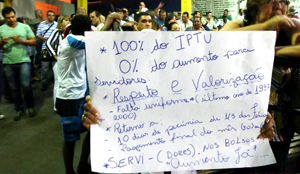 * 100% do IPTU
0% do aumento para
Servidores
* Respeito e Valorização
- Falta uniforme * (último ano de 1999
2000)
* Retorno a:
- 10 dias de pecúnia de 1/3 das
- Pagamento final do mês
* SERVI - (DORES), NOS BOLSOS
Aumento Já....